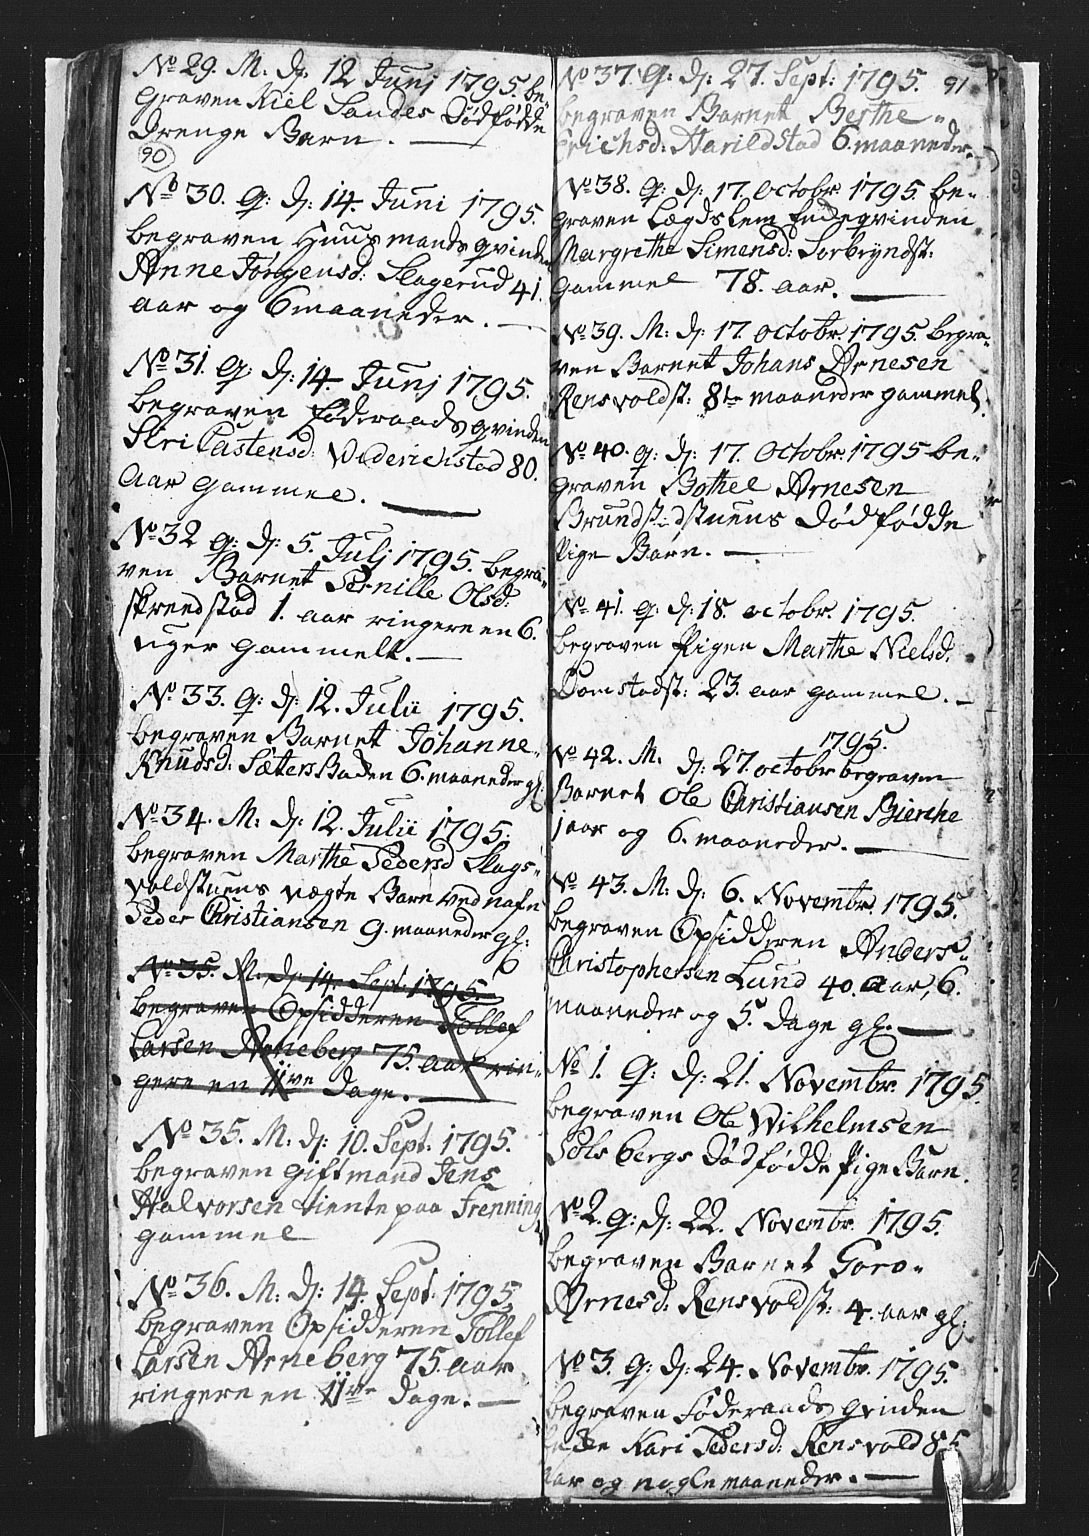 No 29. M. d: 12 Junj 1795. be-
graven Niel Sandes Dødfødde
Drenge Barn.
90
No 30. Q: d: 14. Juni 1795.
begraven Huusmands qvinden
Anne Jørgensd: Slagerud 41.
aar og 6 maaneder.
No 31. Q: d: 14. Junj 1795.
begraven Føderaads qvinden
Siri Castensd: Viderichstad 80.
Aar gammel.
No 32 Q: d: 5. Julj 1795. begra-
ven Barnet Pernille Olsd:
Skrendstad 1. aar ringere en 6.
uger gammelt.
No 33. Q: d: 12. Julii 1795.
begraven Barnet Johanne
Knudsd: Sæters Baden 6. maaneder gl:
No 34. M: d: 12. Julii 1795.
begraven Marthe Pedersd Slags-
voldstuens uægte Barn ved nafn
Peder Christiansen 9. maaneder gl:
No 35. M: d: 14. Sept: 1795.
begraven Opsidderen Tollef
Larsen Arneberg 75. aar rin-
gere en 11ve Dage.
No 35. M. d: 10. Sept: 1795.
begraven giftmand Jens
Halvorsen tiente paa Frenning
gammel
No 36. M: d: 14. Sept: 1795.
begraven Opsidderen Tollef
Larsen Arneberg 75. aar
ringere en 11ve Dage.
No 37. Q: d: 27. Sept: 1795. 91
begraven Barnet Berthe
Erichsd: Harildstad 6. maaneder.
No 38. Q: d: 17. Octobr. 1795 be-
graven Lægdslem Enkeqvinden
Margrethe Simensd: Sorbryndst:
gammel 78. aar.
No 39. M: d: 17. Octobr. 1795. begra-
ven Barnet Johans Arnesen
Rensvoldst: 8te maaneder gammel.
No 40. Q: d: 17. Octobr. 1795 be-
graven Bothel Arnesen
Brundstadstuens Dødfødde
Pige Barn.
No 41. Q: d: 18. Octobr. 1795.
begraven Pigen Marthe Nielsd:
Domstadst: 23. aar gammel.
1795.
No 42. M. d: 27. octobr begraven
Barnet Ole Christiansen Bierche
jaar og 6. maaneder.
No 43. M: d: 6. Novembr. 1795.
begraven Opsidderen Anders
Christophersen Lund 40. Aar, 6.
maaneder og 5. Dage gl.
No 1. Q: d: 21. Novembr. 1795.
begraven Ole Wilhelmsen
Solsbergs Dødfødde Pige Barn.
No 2. Q: d: 22. Novembr. 1795.
begraven Barnet Goro
Arnesd: Rensvoldst: 4. aar gl:
No 3. Q: d: 24. Novembr. 1795.
begraven Føderaads qvinden
Kari Pedersd: Rensvold 85
aar og nogle maaneder.